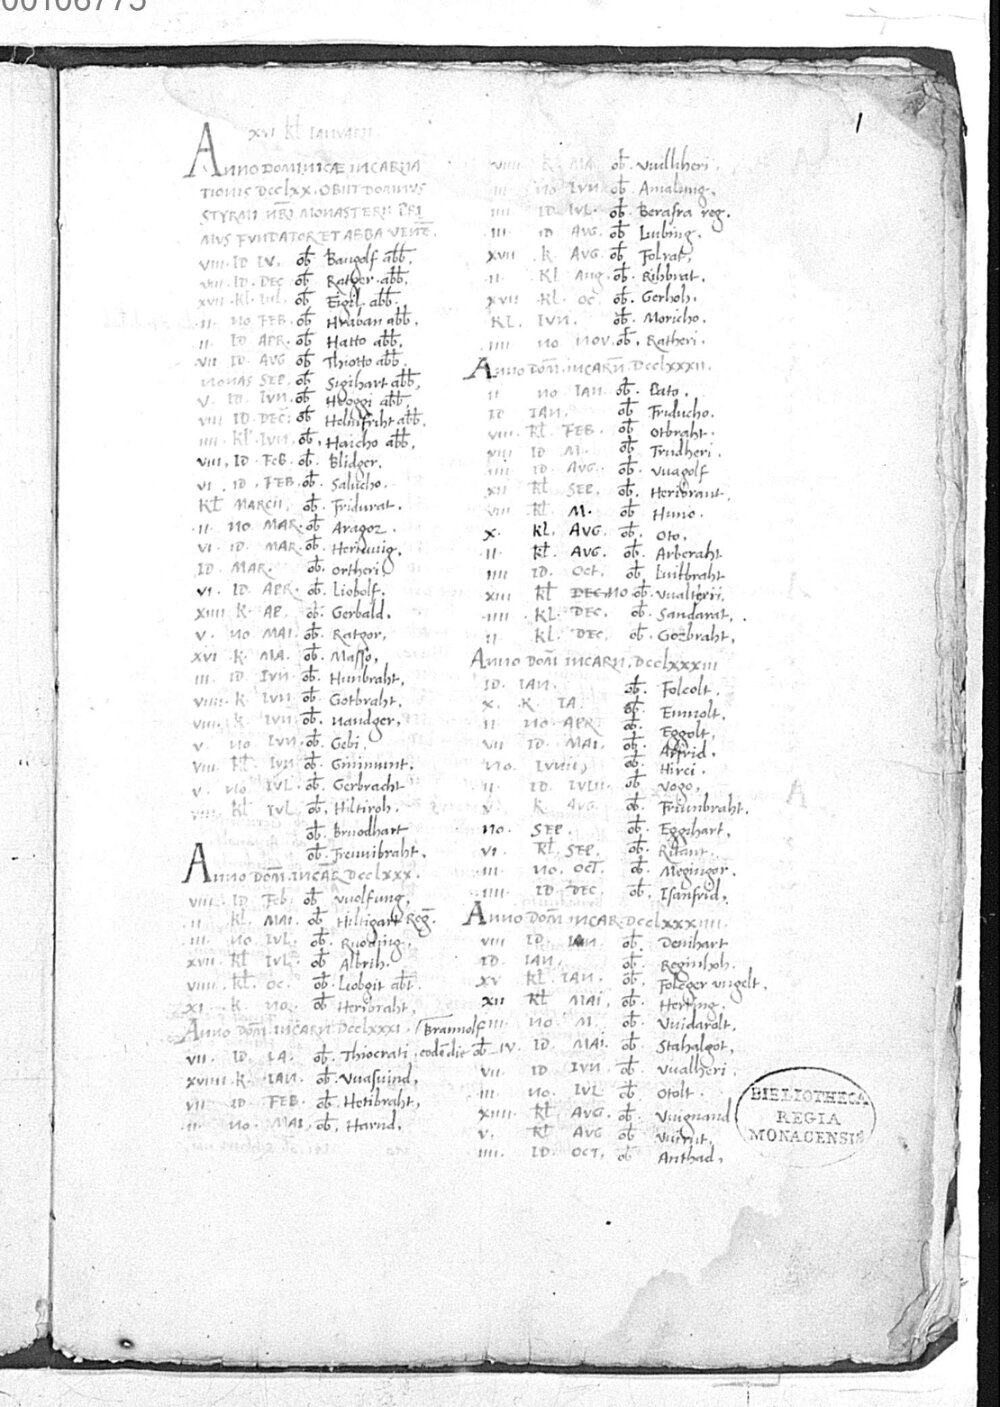 00106773
1
xvi kł ianuarii
Anno dominicæ incarna
tionis dcclxx. obiit domnus
styrmi nr̄i monasterii pri
mus fundator et abba uen̄e.
viii. id iv. ob̄ Baugolf abb̄.
viii. id. dec ob̄ Ratger. abb̄.
xvii. kl. iul. ob̄ Eigel. abb̄.
ii. no feb. ob̄ Hraban abb̄.
ii. id apr. ob̄ Hatto abb̄.
vii id. aug ob̄ Thiotto abb̄.
nonas sep. ob̄ Sigihart abb̄.
v. id. iun. ob̄ Huoggi abb̄.
viii id. dec: ob̄ Helmfriht abb̄.
iiii. kł. iun. ob̄. Haicho abb̄.
viii, id. feb. ob̄. Blidger.
vi. id. feb. ob̄. Salucho.
kł marcii. ob̄. Fridurat.
ii. no mar. ob̄ Aragoz.
vi. id. mar. ob̄. Hertuuig.
id mar. ob̄. Ortheri.
vi. id apr. ob̄. Liobolf.
xiiii k. ap. ob̄. Gerbald.
v. no mai. ob̄. Ratgor.
xvi k. ma. ob̄. Masso.
iii. id iun ob̄. Hunbraht.
viiii. k iun ob̄. Gotbraht.
viii. k. iun ob̄. Nandger.
v. no iun ob̄. Gebi.
viii. kł. iun ob̄. Gmimunt.
v. no iul. ob̄. Gerbracht
viii kł iul. ob̄. Hiltiroh.
ob̄. Bruodhart
ob̄. Freunibraht.
Anno dom̄. incār dcclxxx.
viii. id feb. ob̄ vuolfung.
ii kl. mai. ob̄ Hiltigart Reḡ.
iii. no iul. ob̄. Ruoding.
xvii. kł iul. ob̄ Albrih.
viiii kł. oc. ob̄. Liobgit abt̄.
xi. k. no. ob̄ Heribraht.
Anno dom̄. incarn̄ dcclxxxi. /Brannolf
vii. id. ia. ob̄. Thiocrati, eodē die ob̄
xviiii. k. ian. ob̄. Vuasuind.
vii id feb. ob̄. Hetibraht.
ii. no. mai. ob̄. Harud.
viiii k. ma. ob̄. Vuilliheri.
iii no iun ob̄. Amalung.
iiii id iul. ob̄. Berasra reg.
iii id aug. ob̄ Luibing.
xvii k. aug. ob̄ Folrat.
ii kl aug. ob̄. Rihbrat.
xvii kl. oc. ob̄. Gerhoh.
kl. iun. ob̄. Moricho.
iiii no nov. ob̄. Ratheri.
Anno dom̄. incarn̄. dcclxxxii.
ii no ian ob̄. Pato.
id ian. ob̄ Friducho.
viii. kł feb. ob̄ Otbraht.
viii id m. ob̄. Trudheri.
iiii id aug. ob̄. Vuagolf
xii kł sep. ob̄. Heribrant.
viii kł m. ob̄ Huno.
x. kl. aug. ob̄. Oto.
ii. kł. aug. ob̄. Arberaht
iiii id. oct. ob̄ Luitbraht
xiii kł dec no ob̄. Vualterii.
iiii kl. dec. ob̄. Sandarat.
ii kl. dec. ob̄. Gozbraht.
Anno dom̄ incarn. dcclxxxiii
id. ian. ob̄. Folcolt.
x. k. ia. ob̄. Emnolt.
ii no. apr ob̄. Eggolt.
vii id. mai. ob̄. Atfrid.
no. iunii, ob̄. Hirci.
ii id. iulii. ob̄ Vogo.
v. k. aug. ob̄. Friunbraht.
no. sep. ob̄. Eggihart.
vi. kł. sep. ob̄. Rifant.
iii no. oct. ob̄. Megingor.
iiii id dec. ob̄. Isanfrid.
Anno dom̄ incar. dcclxxxiiii.
viii id. ian. ob̄. Denihart
id. ian. ob̄. Reginhoh.
xv kł. ian. ob̄. Folcger vngelt.
xii kł mai. ob̄. Herting.
iii no m. ob̄. Vuidarolt.
iv. id. mai. ob̄. Stahalgot.
vii. id iun ob̄. Vualheri.
iii no. iul ob̄. Otolt.
xiiii kł aug. ob̄. Vuignand
v. kł aug ob̄. Vuirut.
iiii. id. oct. ob̄ Anthad.
BIBLIOTHECA
REGIA
MONACENSIS